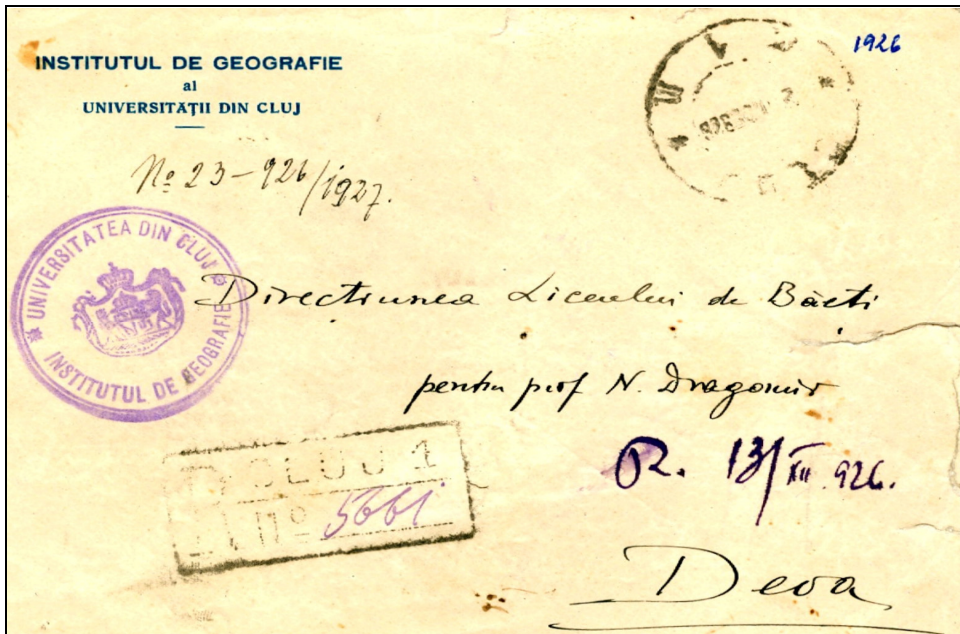 INSTITUTUL DE GEOGRAFIE
al
UNIVERSITĂȚII DIN CLUJ
1926
No 23-926/1927.
* UNIVERSITATEA DIN CLUJ *
INSTITUTUL DE GEOGRAFIE
Direcțiunea Liceului de Băeți
pentru prof N. Dragomir
R. 13/XII 926.
CLUJ 1
No 5661
Deva